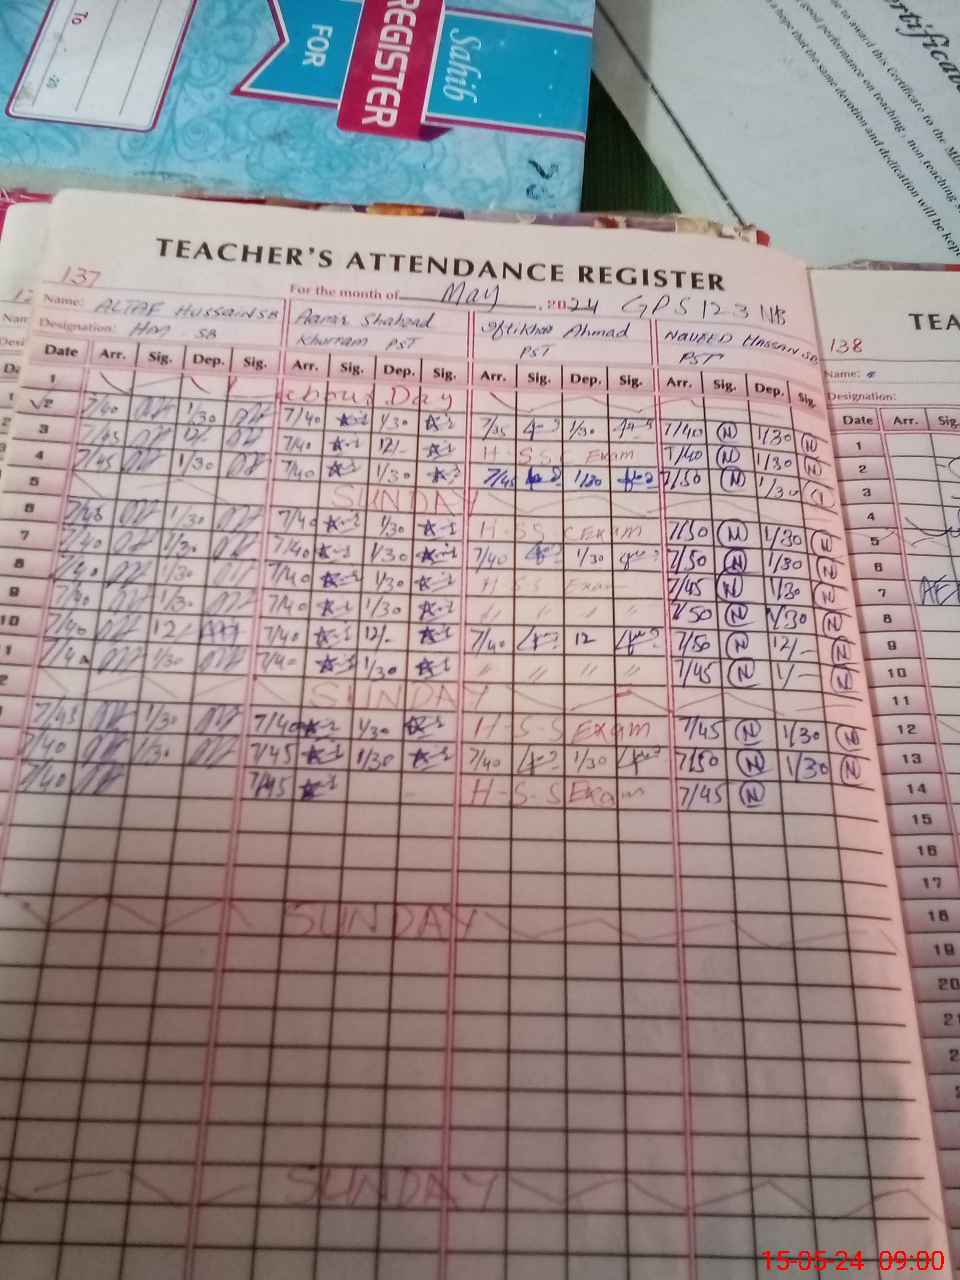 To
20
FOR
REGISTER
Sahib
Certificate
to award this Certificate to the
good performance on teaching, non teaching
a hope that the same devotion and dedication will be kept
TEACHER'S ATTENDANCE REGISTER
137
For the month of May 2024 GPS 123 NB
Name: ALTAF HUSSAIN SB Aamir Shahzad Iftikhar Ahmad NAVEED HASSAN SB
Designation: HM SB Khurram PST PST PST
Date Arr. Sig. Dep. Sig. Arr. Sig. Dep. Sig. Arr. Sig. Dep. Sig. Arr. Sig. Dep. Sig.
1 Labour Day
2 7/40 1/30 7/40 1/30 7/35 1/30 7/40 N 1/30 N
3 7/45 12/- 7/40 12/- H-SSC Exam 7/40 N 1/30 N
4 7/45 1/30 7/40 1/30 7/45 1/30 7/50 N 1/30
5 SUNDAY
6 7/45 1/30 7/40 1/30 H-SSC Exam 7/50 N 1/30 N
7 7/40 1/30 7/40 1/30 7/40 1/30 7/50 N 1/30 N
8 7/40 1/30 7/40 1/30 H SS Exam 7/45 N 1/30 N
9 7/40 1/30 7/40 1/30 " " " " 7/50 N 1/30 N
10 7/40 12/ 7/40 12/- 7/40 12 7/50 N 12/- N
1 7/40 1/30 7/40 1/30 " " " " 7/45 N 1/- N
2 SUNDAY
7/45 1/30 7/40 1/30 H-S-S Exam 7/45 N 1/30 N
7/40 1/30 7/45 1/30 7/40 1/30 7/50 N 1/30 N
7/40 7/45 H-S-S Exam 7/45 N
SUNDAY
SUNDAY
TEA
138
Name:
Designation:
Date Arr. Sig.
1
2
3
4
5
6
7
8
9
10
11
12
13
14
15
16
17
18
19
20
21
15-05-24 09:00